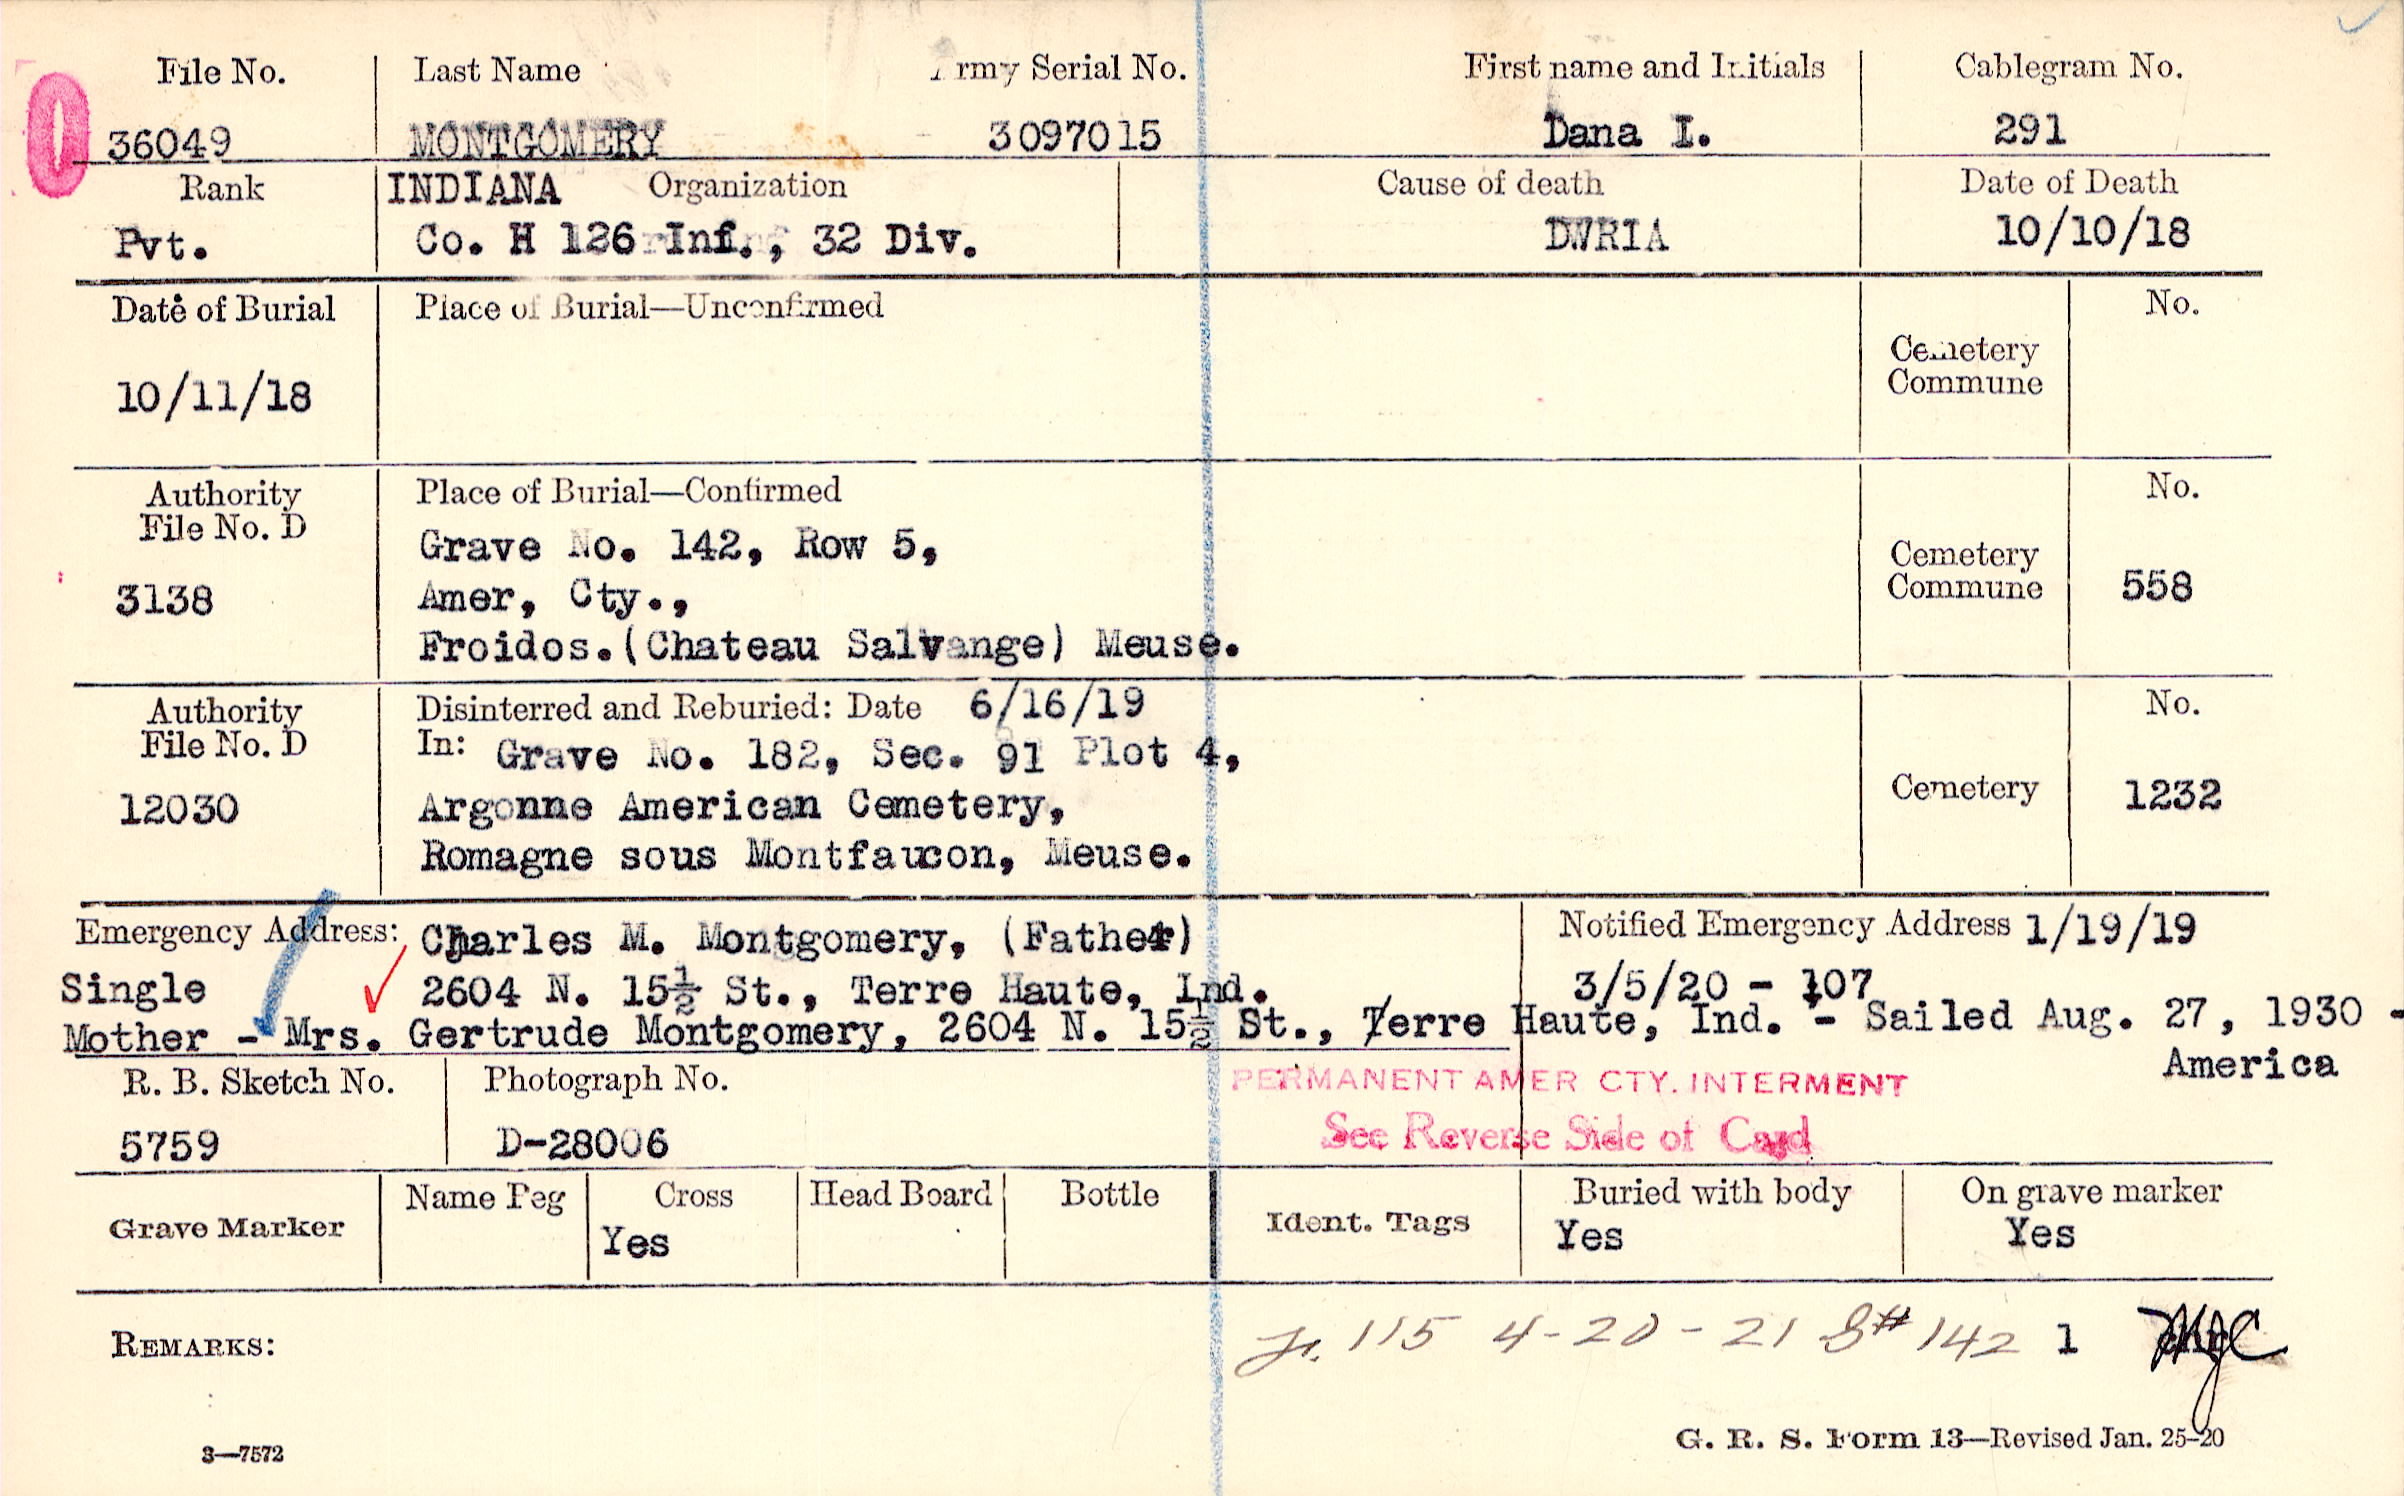 File No. Last Name Army Serial No. First name and Initials Cablegram No.
0
36049 MONTGOMERY 3097015 Dana I. 291
Rank INDIANA Organization Cause of death Date of Death
Pvt. Co. H 126 Inf., 32 Div. DWRIA 10/10/18
Date of Burial Place of Burial—Unconfirmed No.
Cemetery
Commune
10/11/18
Authority Place of Burial—Confirmed No.
File No. D
Grave No. 142, Row 5,
Cemetery
Commune 558
3138 Amer, Cty.,
Froidos.(Chateau Salvange) Meuse.
Authority Disinterred and Reburied: Date 6/16/19 No.
File No. D In: Grave No. 182, Sec. 91 Plot 4,
12030 Argonne American Cemetery, Cemetery 1232
Romagne sous Montfaucon, Meuse.
Emergency Address: Charles M. Montgomery, (Father) Notified Emergency Address 1/19/19
Single 2604 N. 15½ St., Terre Haute, Ind. 3/5/20 - 107
Mother - Mrs. Gertrude Montgomery, 2604 N. 15½ St., Terre Haute, Ind. - Sailed Aug. 27, 1930 -
America
R. B. Sketch No. Photograph No. PERMANENT AMER CTY. INTERMENT
5759 D-28006 See Reverse Side of Card
Grave Marker Name Peg Cross Head Board Bottle Ident. Tags Buried with body On grave marker
Yes Yes Yes
REMARKS: 115 4-20-21 S# 142 1
S—7572 G. R. S. Form 13—Revised Jan. 25-20